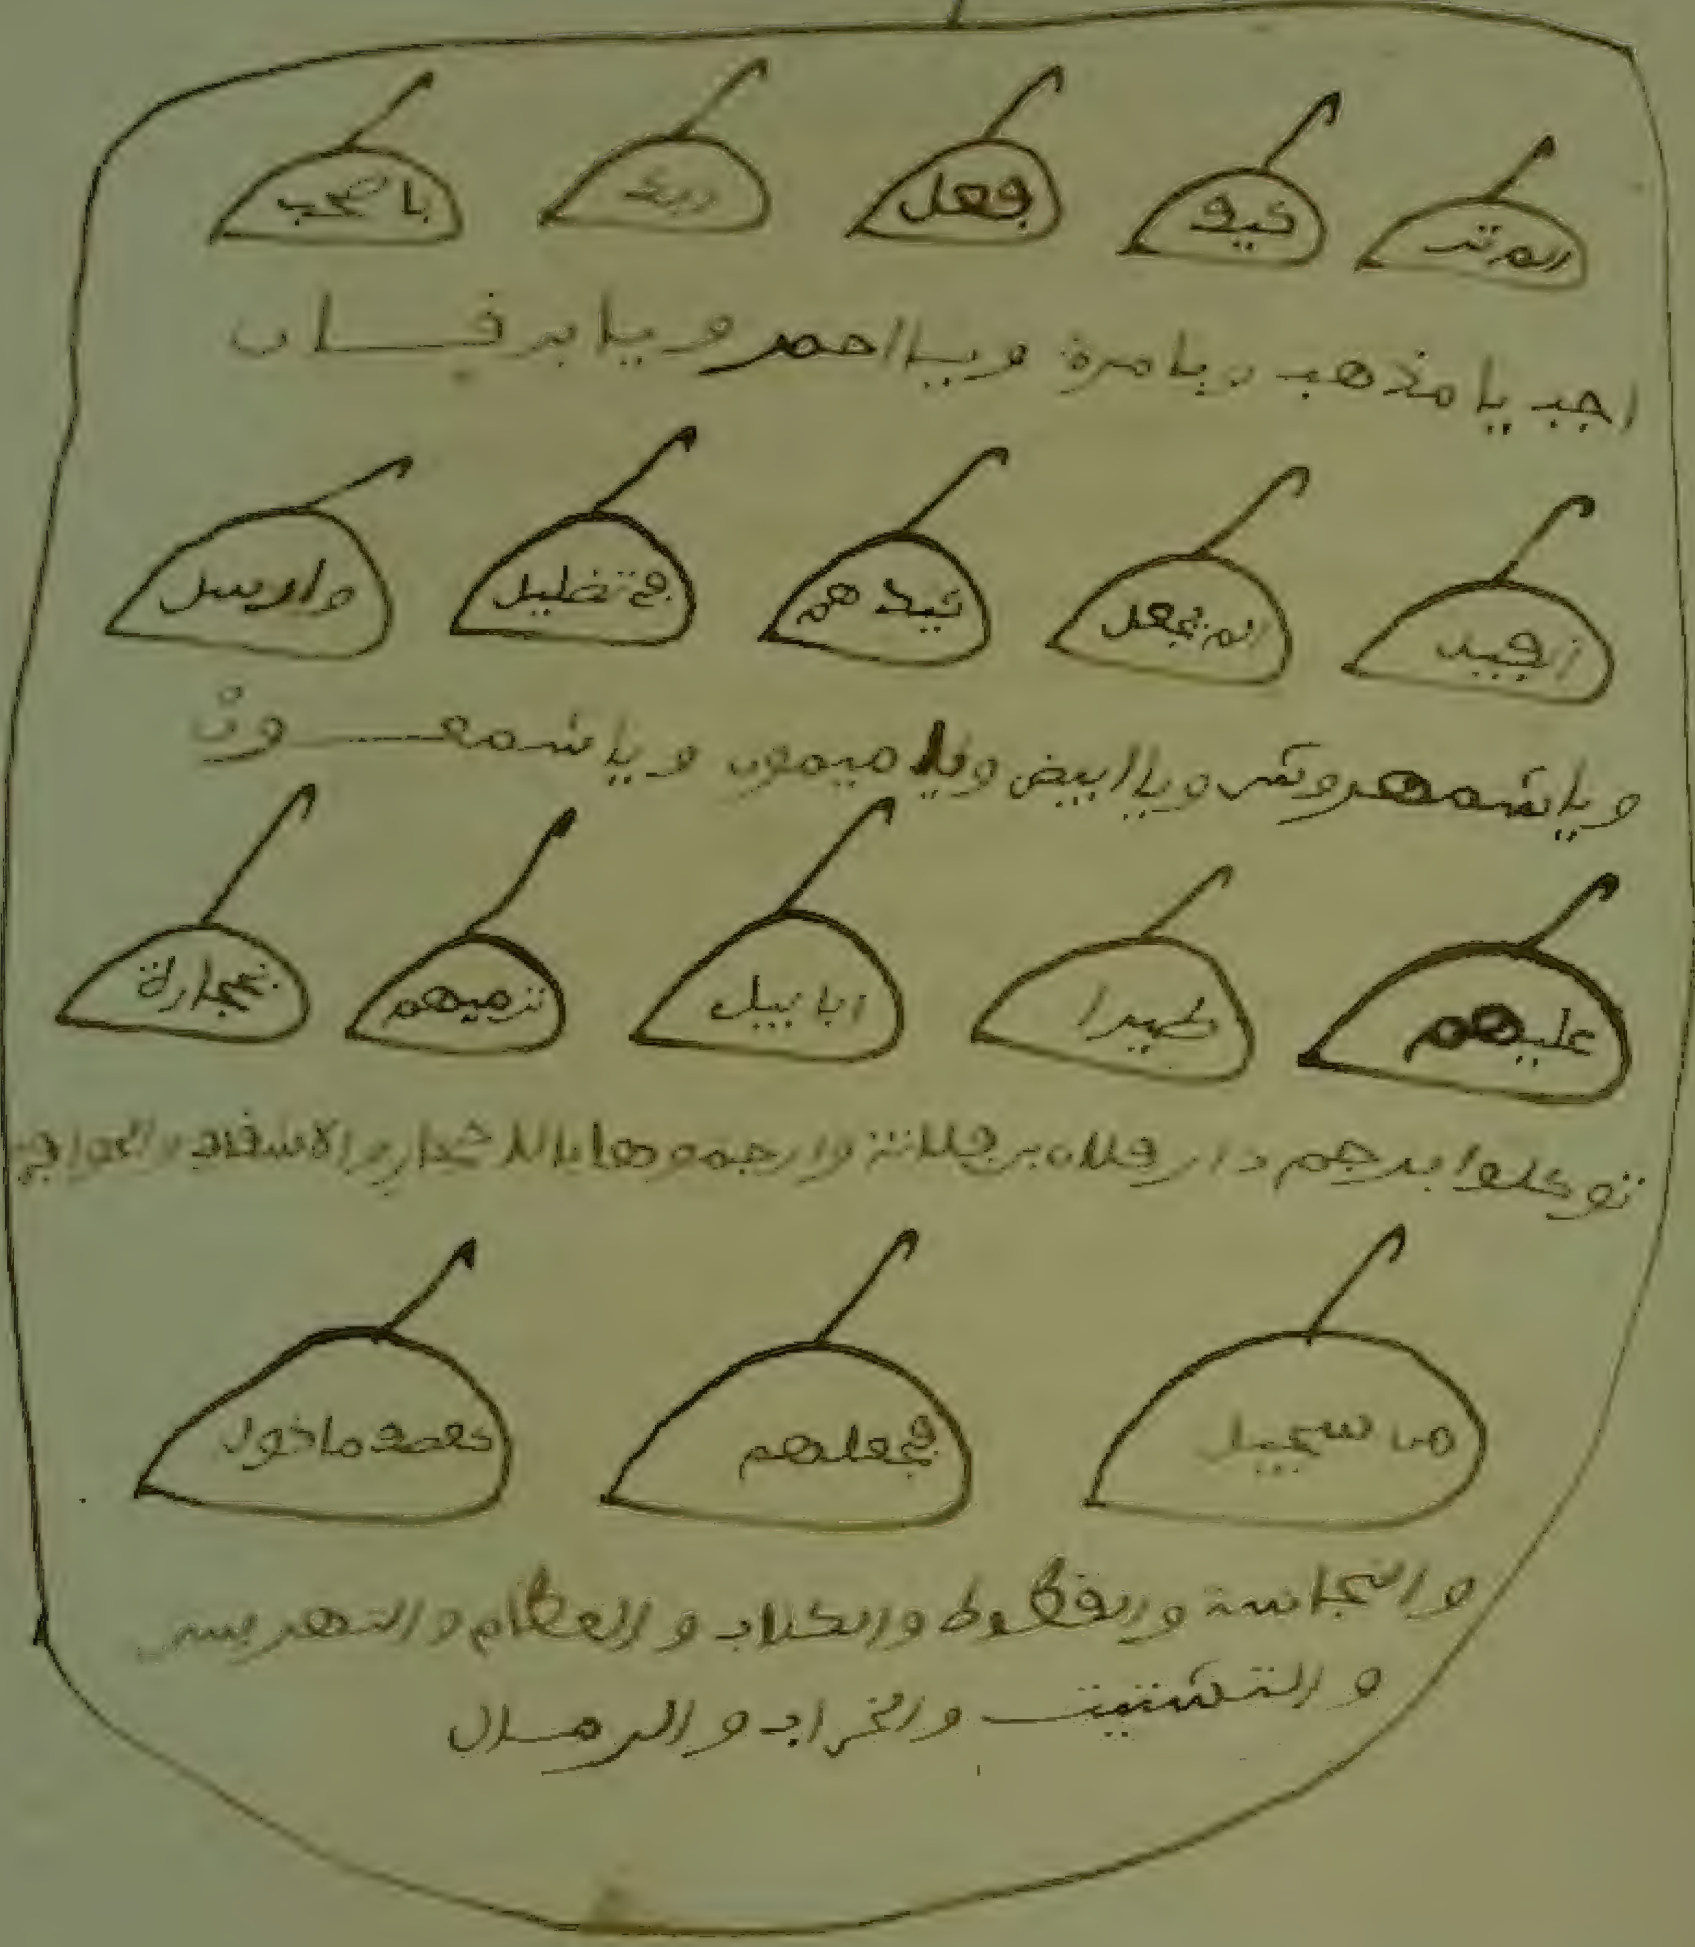 الم تر كيف فعل ربك باصحب
اجب يا مذهب ويا مرة ويا احمر ويا برقان
الفيل الم يجعل كيدهم في تظليل وارسل
ويا شمهروش ويا ابيض ويا ميمون ويا شمعون
عليهم طيرا ابابيل ترميهم بحجارة
توكلوا برجم دار فلان بن فلانة وارجموها بالاحجار والاشقاف
من سجيل فجعلهم كعصف ماكول
والنجاسة والقطوط والكلاب والعظام والتهريس
والتشتيت والخراب والرمال